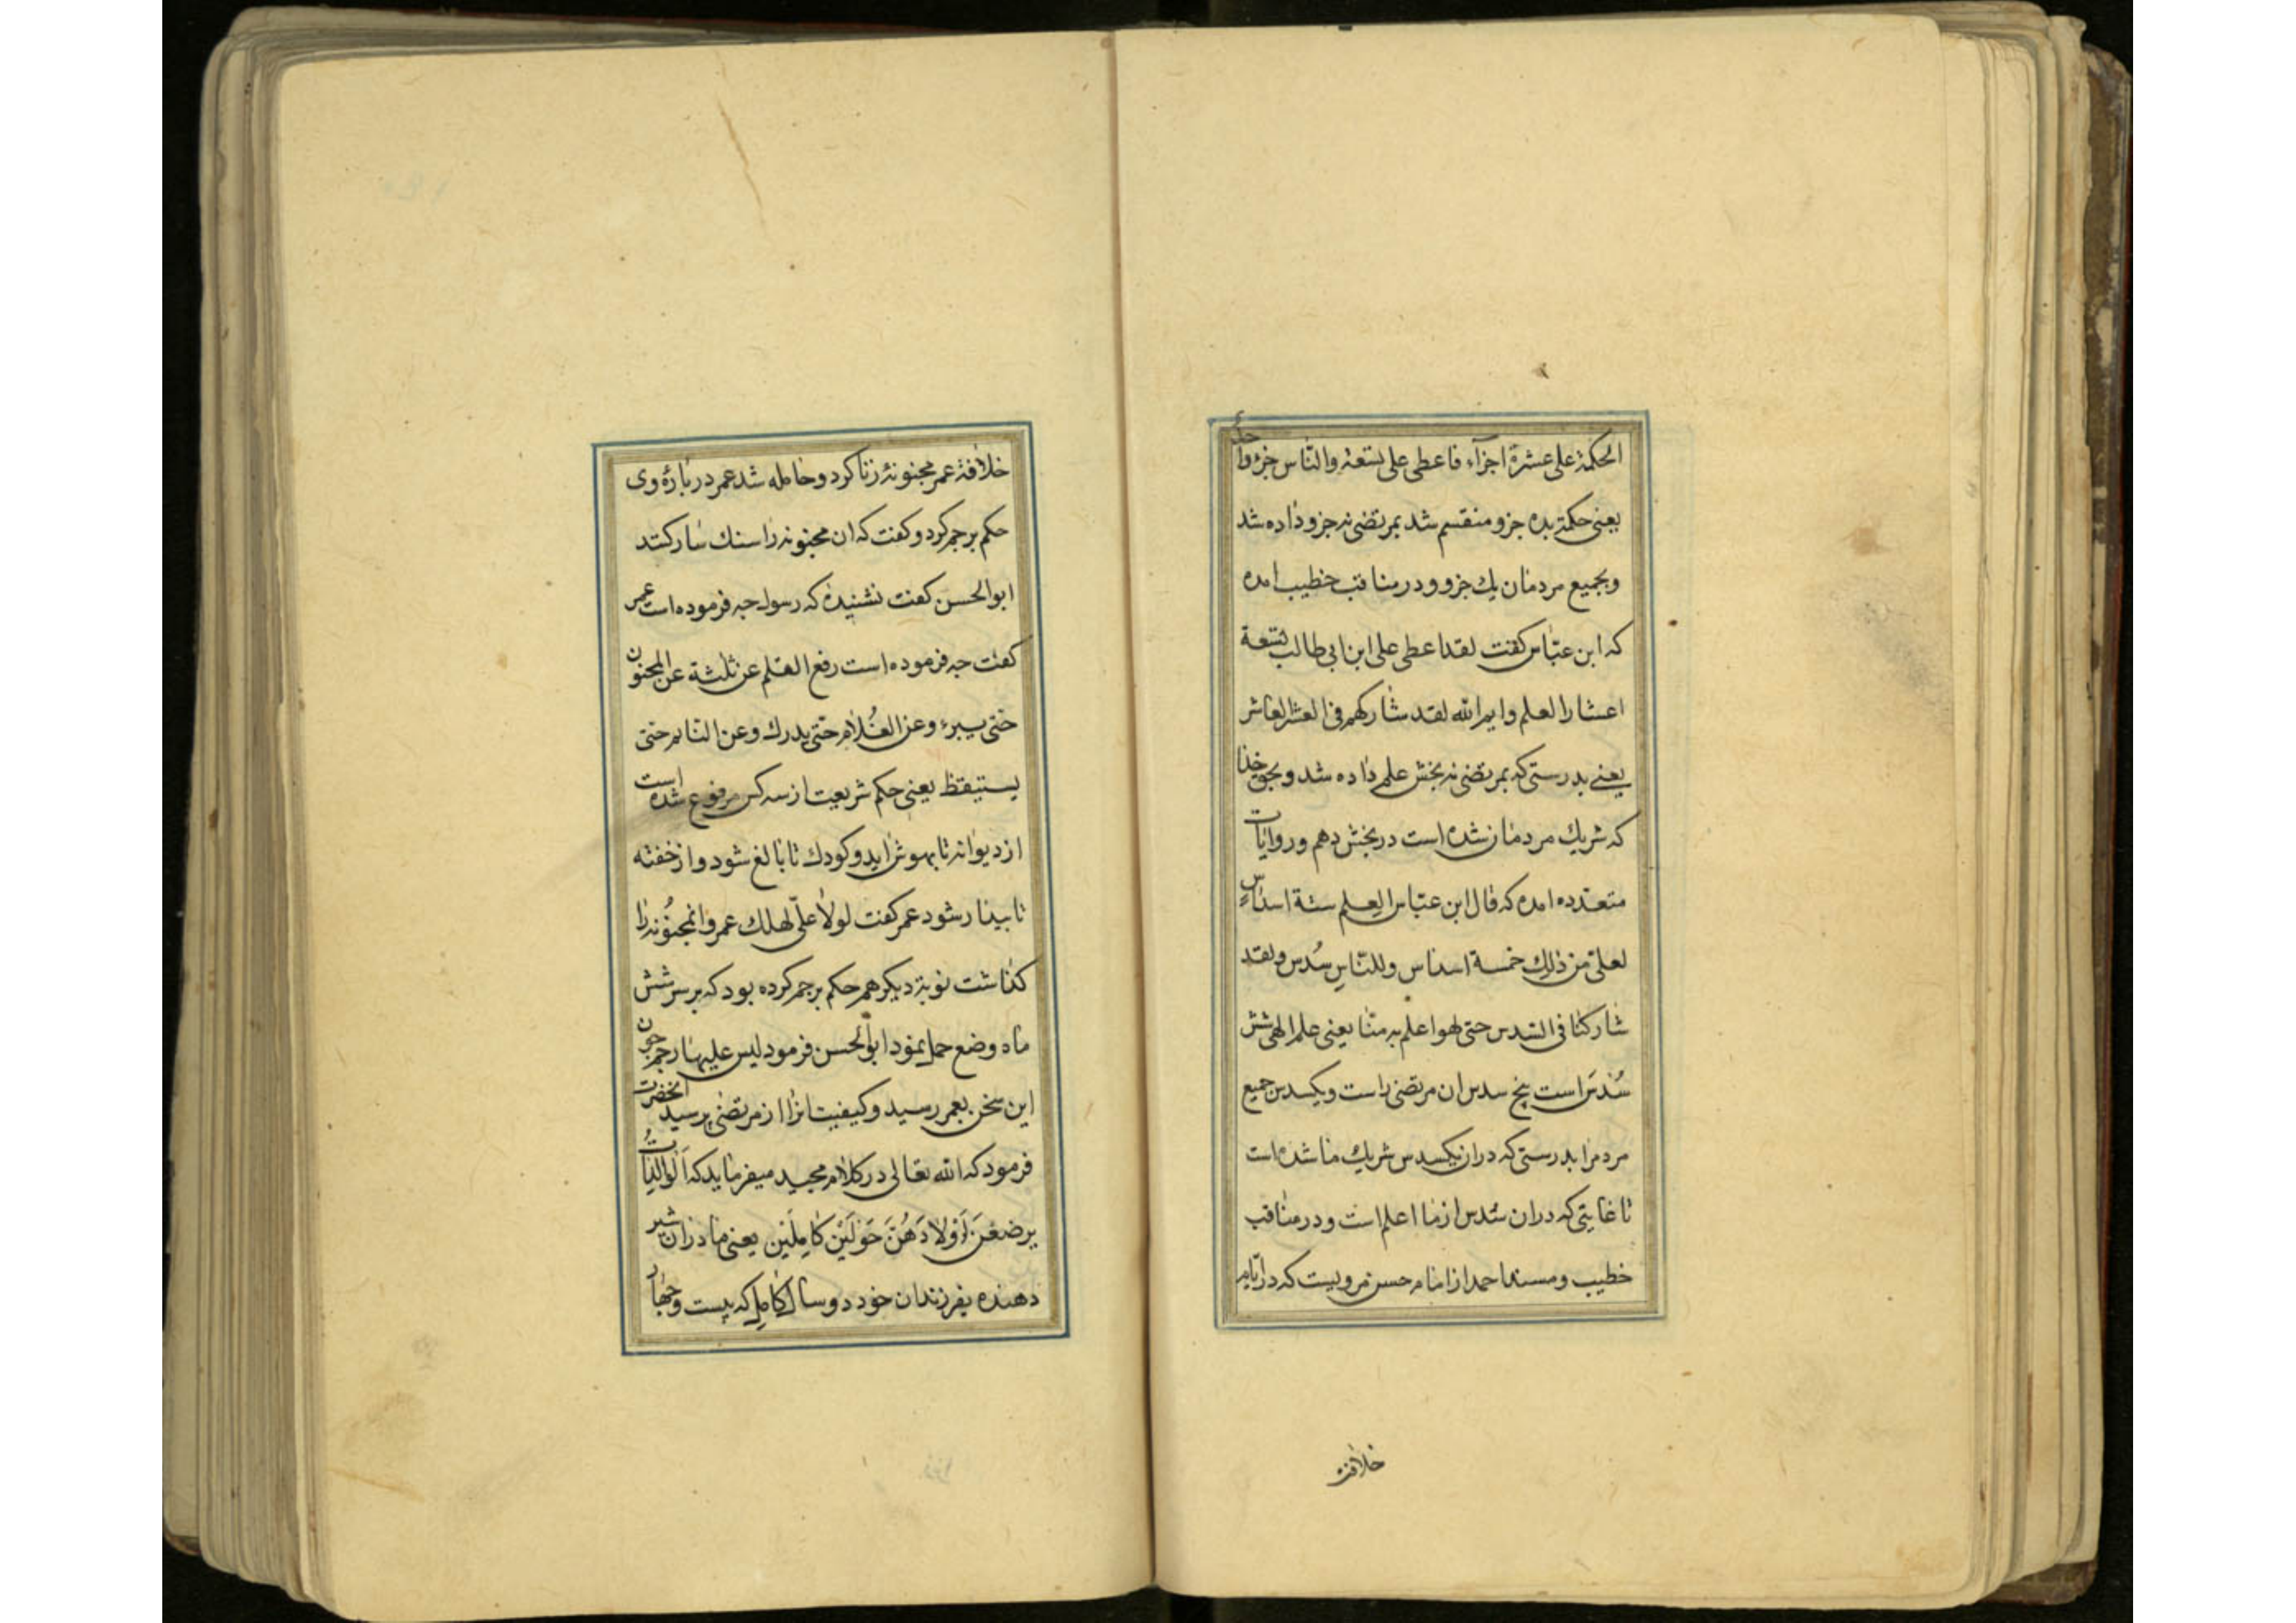 الحکمة علی عشرة اجزآء فاعطی علی تسعة والناس جزءوا حدا
یعنی حکمة بده جزو منقسم شد بمرتضی نه جزو داده شد
وبجمیع مردمان یك جزو ودر مناقب خطیب امده
که ابن عبّاس کفت لقد اعطی علی ابن ابی طالب تسعة
اعشار العلم وایم الله لقد شارکهم فی العشر العاشر
یعنے بدرستی که بمرتضی نه بخش علم داده شد وبحق خدا
که شریك مردمان شده است در بخش دهم وروایات
متعدده امده که قال ابن عبّاس العلم ستة اسداس
لعلیّ من ذلك خمسة اسداس وللنّاس سُدس ولقد
شارکنا فی السّدس حتی لهو اعلم به منّا یعنی علم الهی شش
سُدس است پنج سدس ان مرتضی راست ویکسدس جمیع
مردم را بدرستی که در ان یکسدس شریك ما شده است
تا غایتی که در ان سُدس از ما اعلم است ودر مناقب
خطیب ومسند احمد از امام حسن مرویست که در ایّام
خلافة
خلافة عمر مجنونهٔ زنا کرد وحامله شد عمر در بارهٔ وی
حکم برجم کرد وکفت که ان مجنونه را سنك سار کنند
ابوالحسن کفت نشنیدهٔ که رسول چه فرموده است عمر
کفت چه فرموده است رفع القلم عن ثلثة عن المجنون
حتی یبرء وعن الغُلام حتّی یدرك وعن النایم حتی
یستیقظ یعنی حکم شریعت از سه کس مرفوع شده است
از دیوانه تا بهوش اید وکودك تا بالغ شود واز خفته
تا بیدار شود عمر کفت لولا علیّ لهلك عمر وانمجنُونه را
کذاشت نوبة دیکر هم حکم برجم کرده بود که بر سر شش
ماه وضع حمل نمود ابوالحسن فرمود لیس علیها رجم چون
این سخن بعمر رسید وکیفیت انرا از مرتضی پرسید انحضرت
فرمود که الله تعالی در کلام مجید میفرماید که اَلوالِداتُ
یرضعنَ اَوْلادَهُنَّ حَوْلَیْنِ کامِلَیْنِ یعنی مادران شیر
دهنده بفرزندان خود دو سال کامل که بیست وچهار